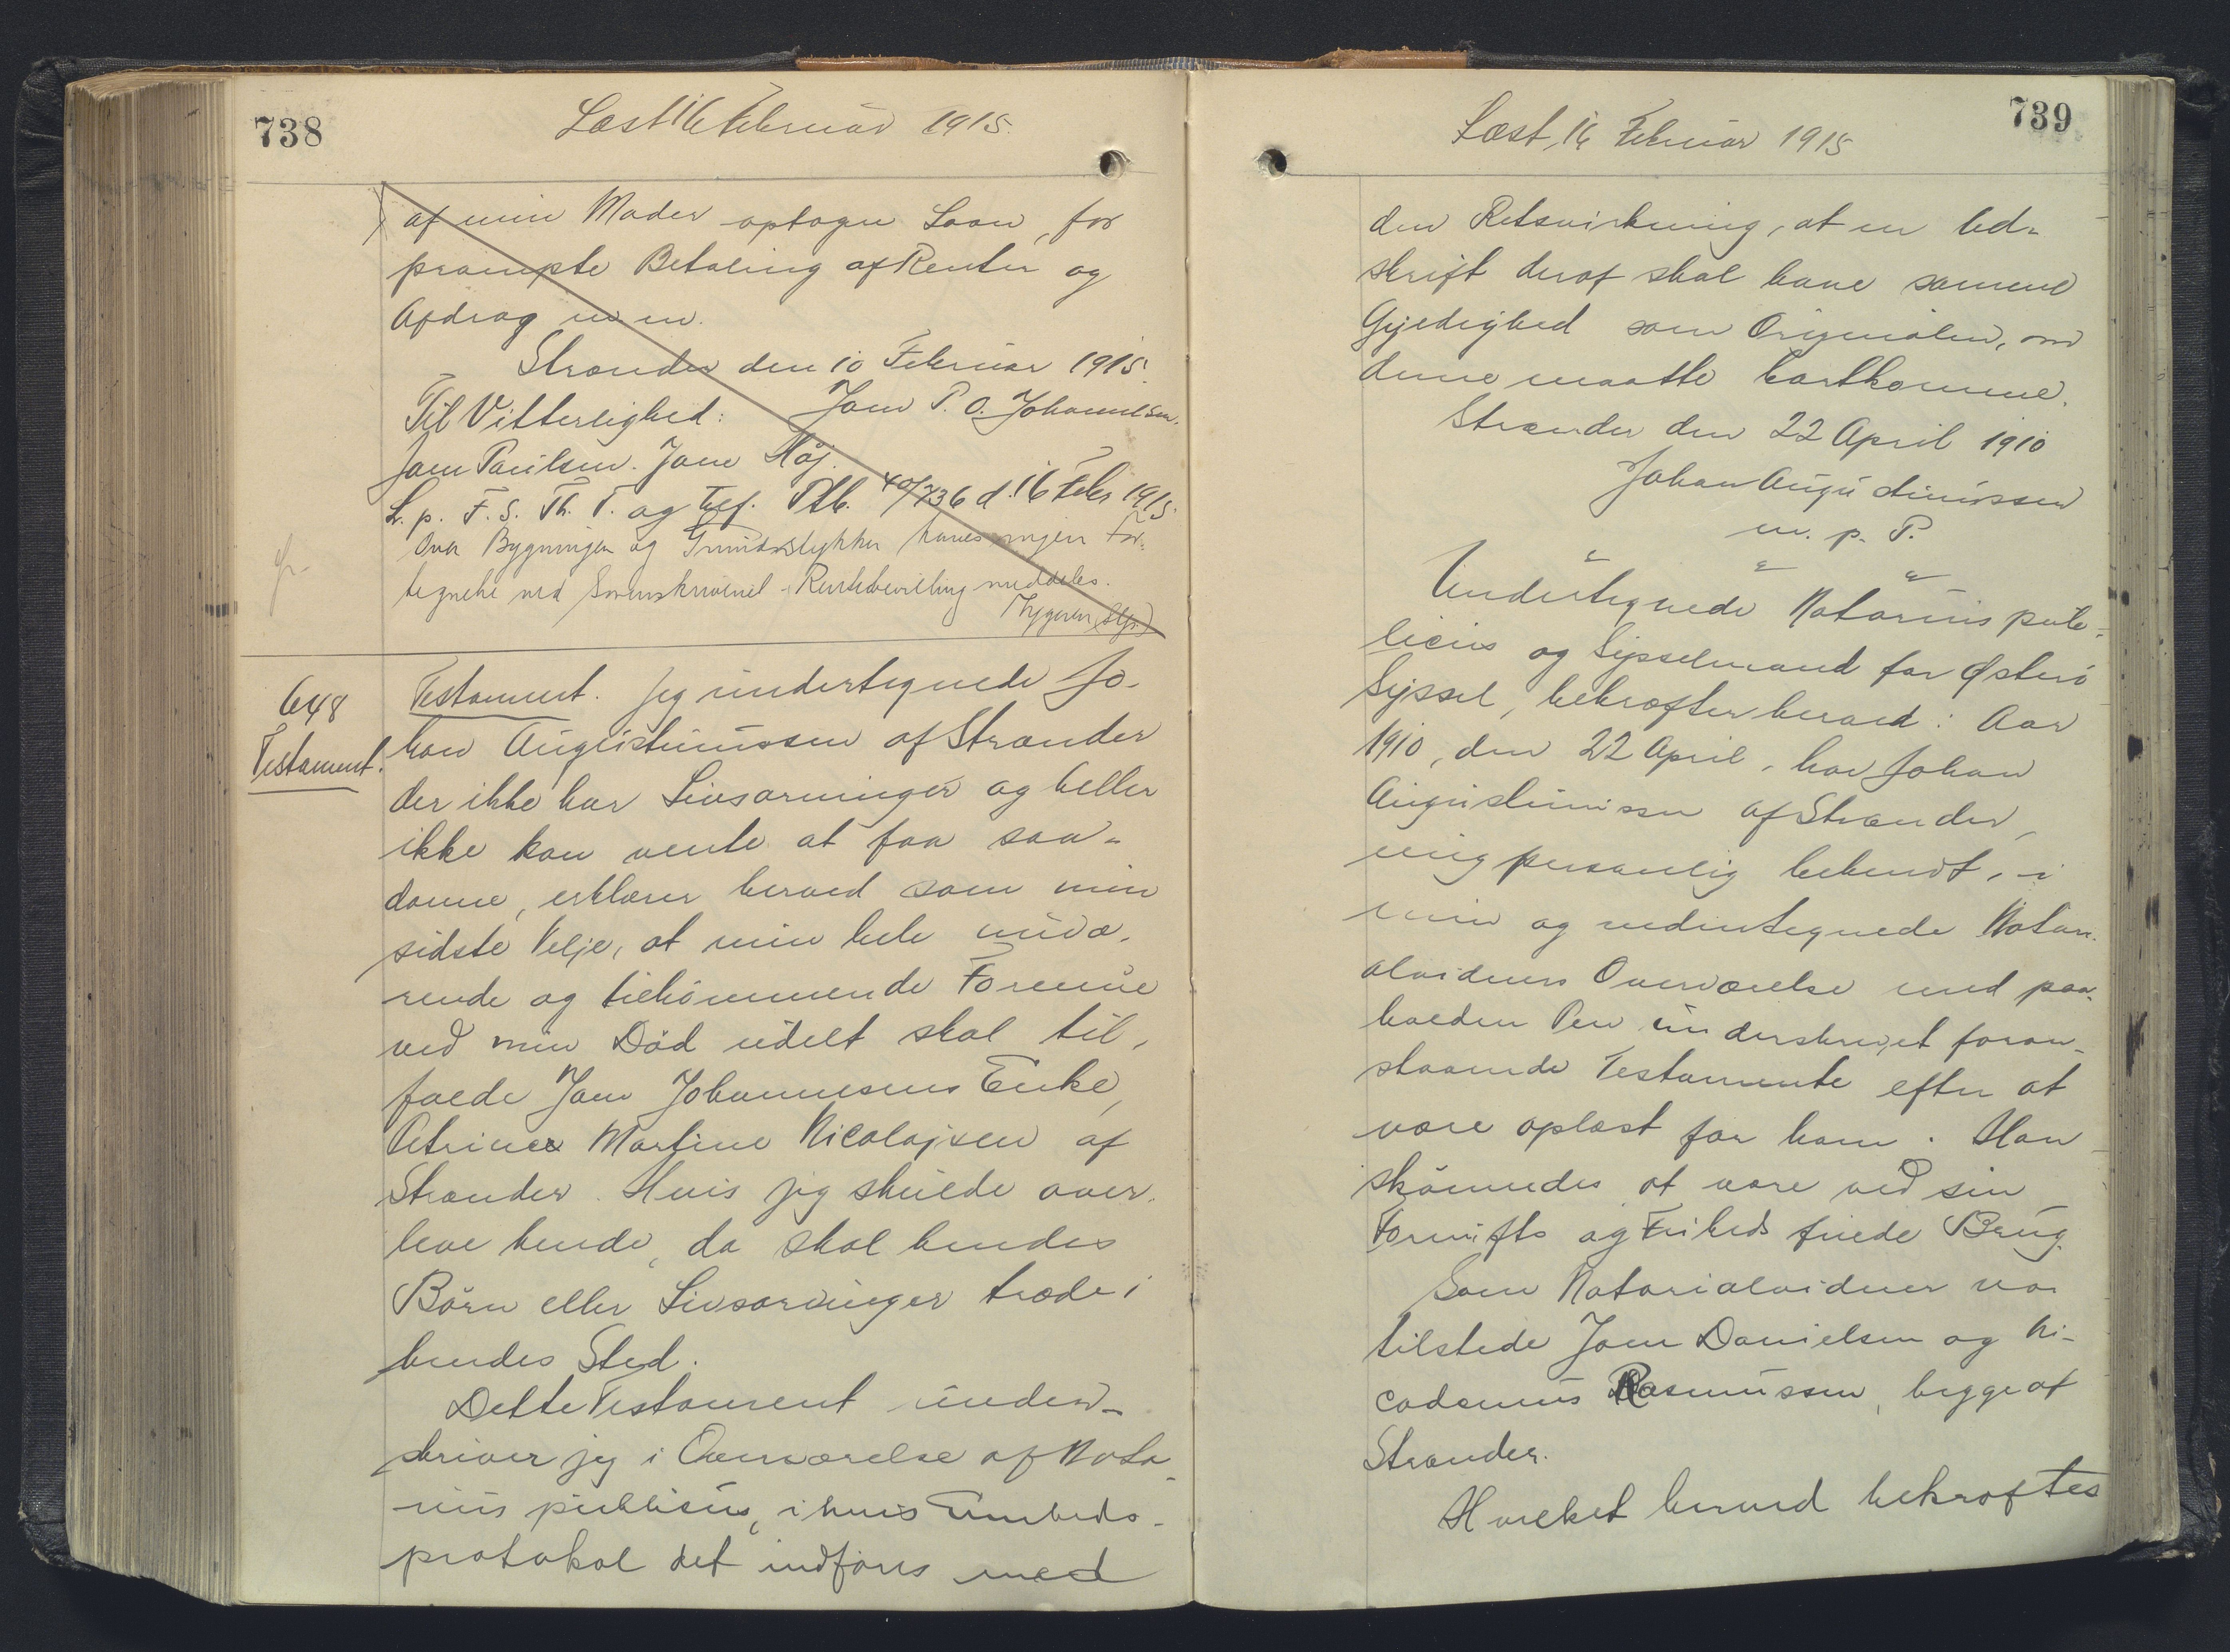 738
Læst 16 Februar 1915.
af min Moder optagne Laan, for
prompte Betaling af Renter og
Afdrag m m.
Strænder den 10 Februar 1915.
Til Vitterlighed: Joen P. O. Johannesen.
Joen Poulsen. Jane Höj.
L. p. F. S. Th. T. og Tlf. Ptb. 40/736 d. 16 Febr 1915.
Over Bygningen og Grundstykker haves ingen For-
tegnelse ved Sorenskriveriet - Rentebevilling meddeles.
Thygesen (Slf.)
648
Testament.
Testament. Jeg undertegnede Jo-
han Augustinussen af Strænder
der ikke har Livsarvinger og heller
ikke kan vente at faa saa-
danne, erklærer herved som min
sidste Velje, at min hele nuvæ-
rende og tilkommende Formue
ved min Död udelt skal til-
falde Joen Johannesens Enke,
Petrine Martine Nicolajsen af
Strænder. Hvis jeg skulde over-
leve hende, da skal hendes
Börn eller Livsarvinger træde i
hendes Sted.
Dette Testament under-
skriver jeg i Overværelse af Nota-
rius publicus, i hvis Embeds-
protokol det indföres med
739
Læst, 16 Februar 1915
den Retsvirkning, at en Ud-
skrift deraf skal have samme
Gyldighed som Originalen, om
denne maatte bortkomme.
Strænder den 22 April 1910
Johan Augustinussen
m. p. P.
Undertegnede Notarius pub-
licus og Sysselmand for Österö
Syssel, bekræfter herved: Aar
1910, den 22 April, har Johan
Augustinussen af Strænder,
mig personlig bekendt, i
min og medundertegnede Notari-
alvidners Overværelse med paa-
holden Pen underskrevet foran-
staaende Testamente efter at
være oplæst for ham. Han
skönnedes at være ved sin
Fornufts og Friheds fulde Brug.
Som Notarialvidner var
tilstede Joen Danielsen og Ni-
codemus Rasmussen, begge af
Strænder.
Hvilket herved bekræftes